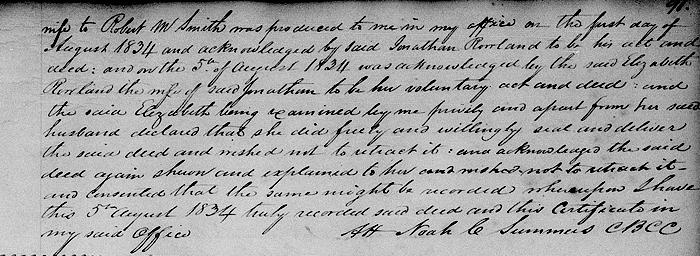 90.
wife to Robert M Smith was produced to me in my office on the first day of
August 1834 and acknowledged by said Jonathan Rowland to be his act and
deed: and on the 5th of August 1834 was acknowledged by the said Elizabeth
Rowland the wife of said Jonathan to be her voluntary act and deed: and
the said Elizabeth being examined by me privily and apart from her said
husband declared that she did freely and willingly seal and deliver
the said deed and wished not to retract it: and acknowledged the said
deed again shewn and explained to her and wished not to retract it
and consented that the same might be recorded whereupon I have
this 5th August 1834 truly recorded said deed and this Certificate in
my said Office Att Noah C Summers CBCC